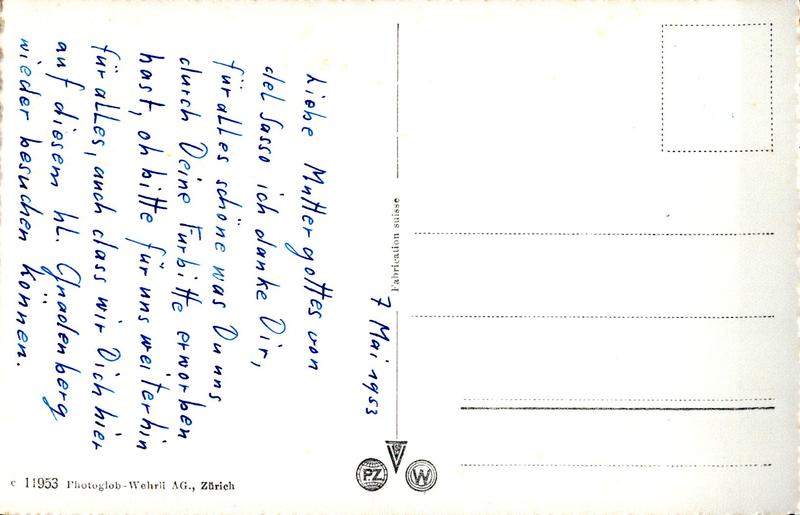 7 Mai 1953
Liebe Muttergottes von
del Sasso ich danke Dir,
für alles schöne was Du uns
durch Deine Fürbitte erworben
hast, oh bitte für uns weiterhin
für alles, auch dass wir Dich hier
auf diesem hl. Gnadenberg
wieder besuchen können.
Fabrication suisse
PZ
W
c 11953 Photoglob-Wehrli AG., Zürich